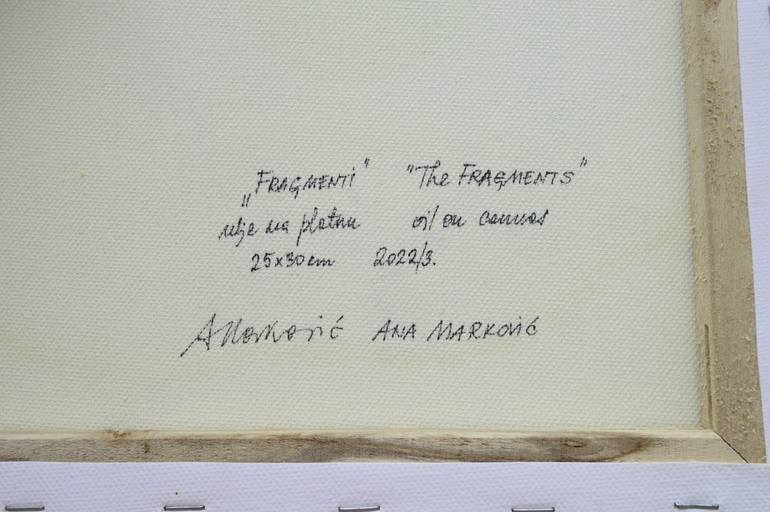 „FRAGMENTI" "The FRAGMENTS"
ulje na platnu oil on canvas
25x30cm 2022/3.
AMarković ANA MARKOVIĆ